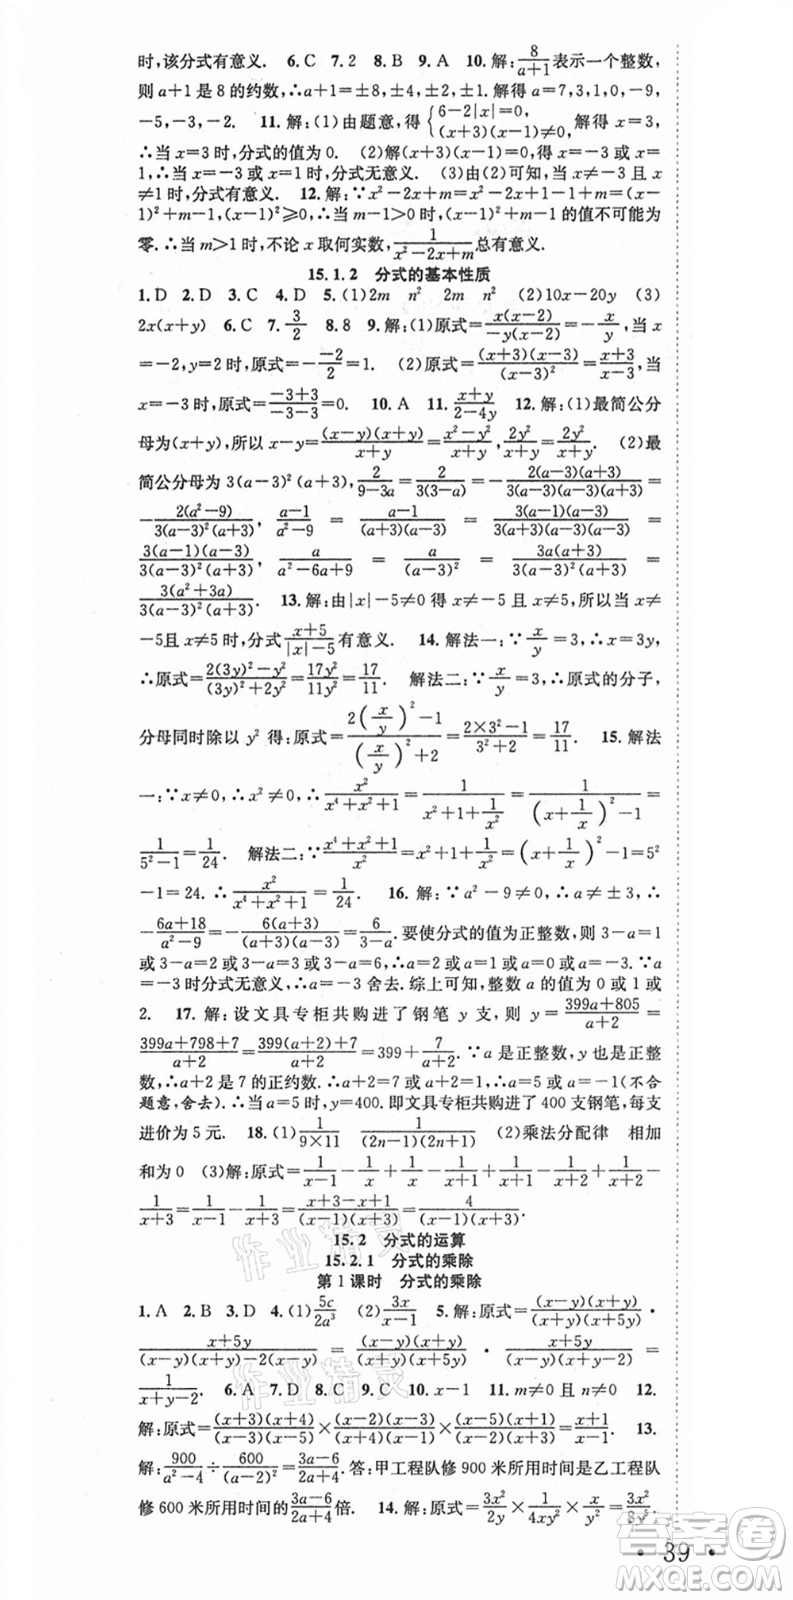 时,该分式有意义. 6.C 7.2 8.B 9.A 10.解:8/(a+1)表示一个整数,
则a+1是8的约数,∴a+1=±8,±4,±2,±1.解得a=7,3,1,0,-9,
-5,-3,-2. 11.解:(1)由题意,得{6-2|x|=0, (x+3)(x-1)≠0, 解得x=3,
∴当x=3时,分式的值为0. (2)解得(x+3)(x-1)=0,x=-3或x=1,
∴当x=-3或x=1时,分式无意义. (3)由(2)可知,当x≠-3且x
≠1时,分式有意义. 12.解:∵x²-2x+m=x²-2x+1-1+m=(x-
1)²+m-1,(x-1)²≥0,∴当m-1>0时,(x-1)²+m-1的值不可能为
零.∴当m>1时,不论x取何实数,1/(x²-2x+m)总有意义.
15.1.2 分式的基本性质
1.D 2.D 3.C 4.D 5.(1)2m n² 2m n² (2)10x-20y (3)
2x(x+y) 6.C 7.3/2 8.8 9.解:(1)原式=x(x-2)/-y(x-2)=-x/y,当
x=-2,y=2时,原式=--2/2=1. (2)原式=(x+3)(x-3)/(x-3)²=(x+3)/(x-3),当
x=-3时,原式=(-3+3)/(-3-3)=0. 10.A 11.(x+y)/(2-4y) 12.解:(1)最简公分
母为(x+y),所以x-y=(x-y)(x+y)/(x+y)=(x²-y²)/(x+y),2y²/(x+y)=2y²/(x+y). (2)最
简公分母为3(a-3)²(a+3),2/(9-3a)=2/3(3-a)=-2(a-3)(a+3)/3(a-3)(a-3)(a+3)=
-2(a²-9)/3(a-3)²(a+3),(a-1)/(a²-9)=(a-1)/(a+3)(a-3)=3(a-1)(a-3)/3(a+3)(a-3)(a-3)=
3(a-1)(a-3)/3(a-3)²(a+3),a/(a²-6a+9)=a/(a-3)²=3a(a+3)/3(a-3)²(a+3)=
3(a²+3a)/3(a-3)²(a+3). 13.解:由|x|-5≠0得x≠-5且x≠5,所以当x≠
-5且x≠5时,分式(x+5)/(|x|-5)有意义. 14.解法一:∵x/y=3,∴x=3y,
∴原式=(2(3y)²-y²)/((3y)²+2y²)=17y²/11y²=17/11. 解法二:∵x/y=3,∴原式的分子,
分母同时除以y²得:原式=(2(x/y)²-1)/((x/y)²+2)=(2×3²-1)/(3²+2)=17/11. 15.解法
一:∵x≠0,∴x²≠0,∴x²/(x⁴+x²+1)=1/(x²+1+1/x²)=1/((x+1/x)²-1)=
1/(5²-1)=1/24. 解法二:∵(x⁴+x²+1)/x²=x²+1+1/x²=(x+1/x)²-1=5²
-1=24.∴x²/(x⁴+x²+1)=1/24. 16.解:∵a²-9≠0,∴a≠±3,∴
-(6a+18)/(a²-9)=-6(a+3)/(a+3)(a-3)=6/(3-a).要使分式的值为正整数,则3-a=1
或3-a=2或3-a=3或3-a=6,∴a=2或1或0或-3.∵a=
-3时分式无意义,∴a=-3舍去.综上可知,整数a的值为0或1或
2. 17.解:设文具专柜共购进了钢笔y支,则y=(399a+805)/(a+2)=
(399a+798+7)/(a+2)=(399(a+2)+7)/(a+2)=399+7/(a+2).∵a是正整数,y也是正整
数,∴a+2是7的正约数.∴a+2=7或1.∴a=5或a=-1(不合
题意,舍去).∴当a=5时,y=400.即文具专柜共购进了400支钢笔,每支
进价为5元. 18.(1)1/(9×11) 1/(2n-1)(2n+1) (2)乘法分配律 相加
和为0 (3)解:原式=1/(x-1)-1/x+1/x-1/(x+1)+1/(x+1)-1/(x+2)+1/(x+2)-
1/(x+3)=1/(x-1)-1/(x+3)=(x+3-x+1)/(x-1)(x+3)=4/(x-1)(x+3).
15.2 分式的运算
15.2.1 分式的乘除
第1课时 分式的乘除
1.A 2.B 3.D 4.(1)5c/2a³ (2)3x/(x-1) 5.解:原式=(x-y)(x+y)/(x+y)(x+5y)·
(x+5y)/((x-y)(x+y)-2(x-y))=(x-y)(x+y)/(x+y)(x+5y)·(x+5y)/(x-y)(x+y-2)=
1/(x+y-2). 6.A 7.D 8.C 9.C 10.x-1 11.m≠0且n≠0 12.
解:原式=(x+3)(x+4)/(x-3)(x-5)×(x-2)(x-3)/(x-2)(x+4)×(x-5)(x+1)/(x+3)(x-3)=(x+1)/(x-3). 13.
解:900/(a²-4)÷600/(a+2)=(3a-6)/(2a+4).答:甲工程队修900米所用时间是乙工程队
修600米所用时间的(3a-6)/(2a+4)倍. 14.解:原式=3x²/2y×1/4xy²×x/y=3x²/8y⁵.
·39·
作业精灵
作业精灵
答案圈
MXQE.COM